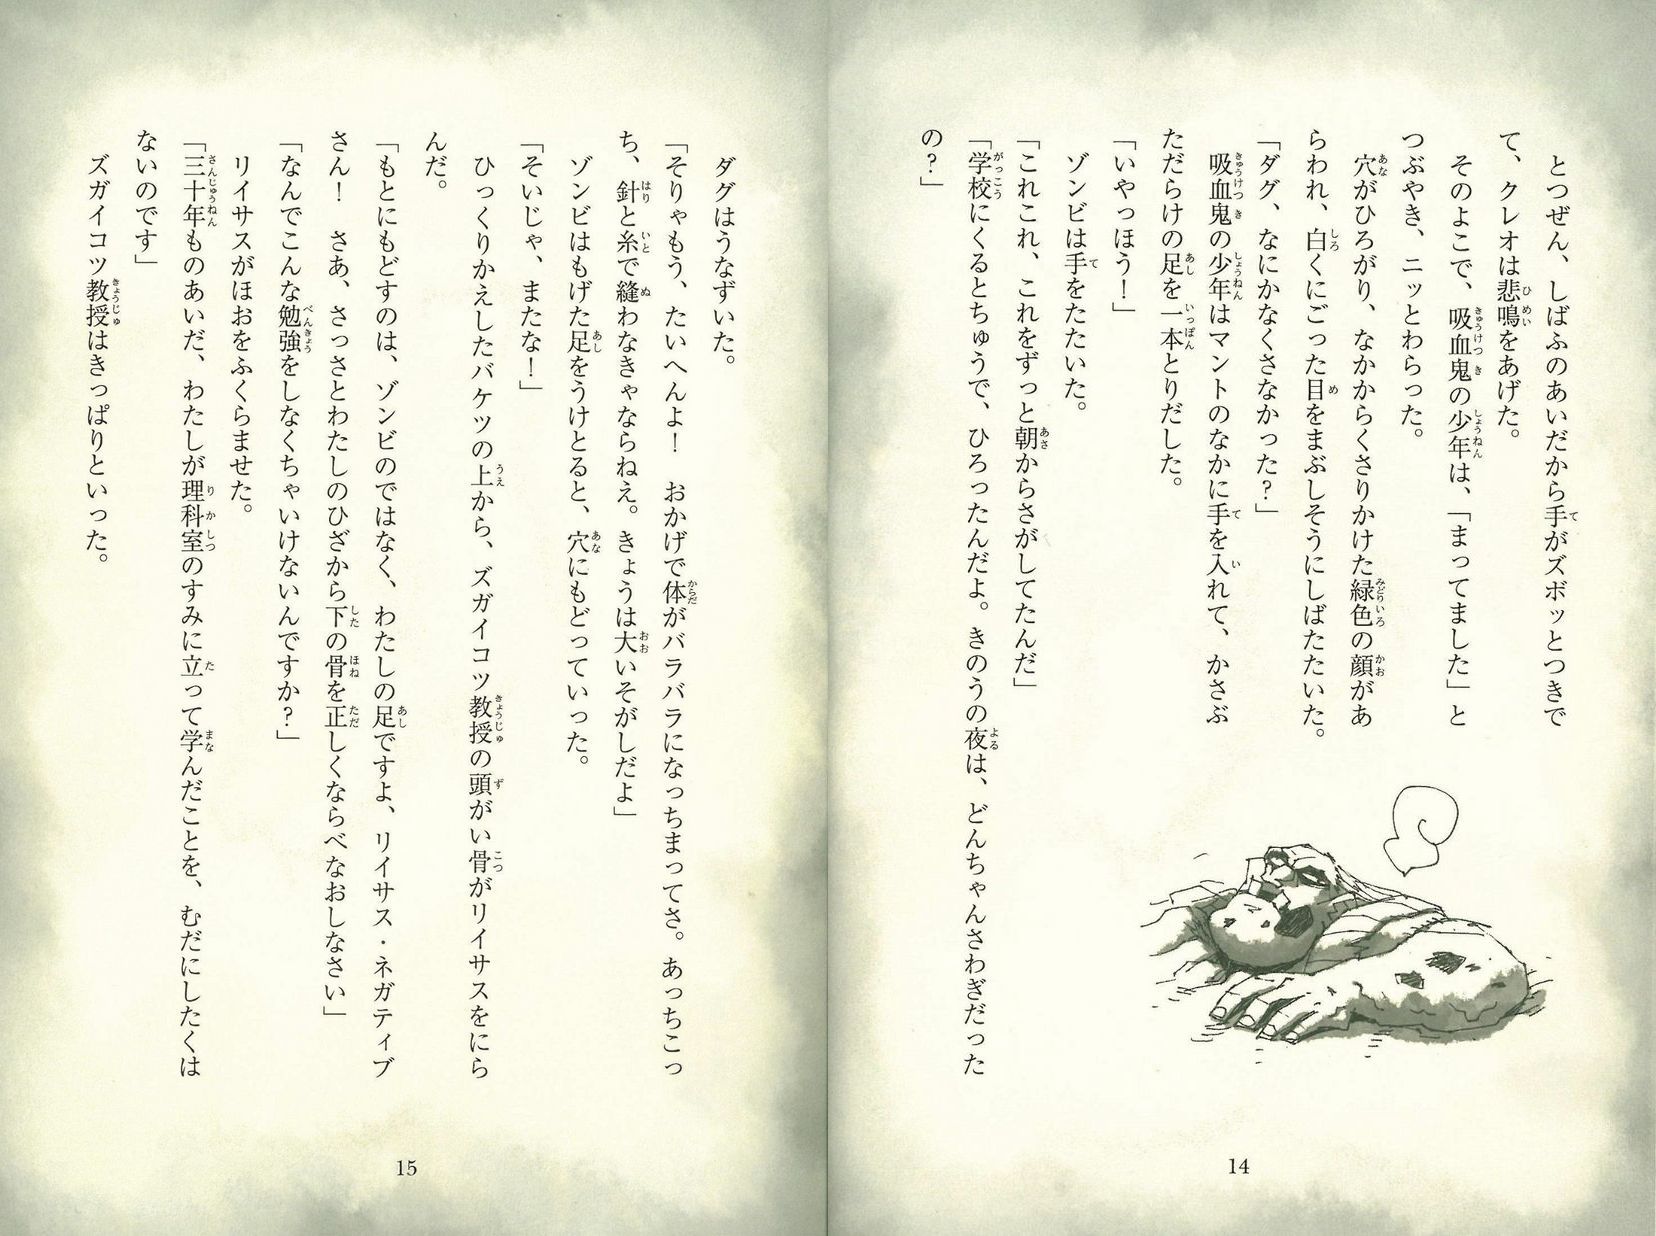 とつぜん、しばふのあいだから手がズボッとつきで
て、クレオは悲鳴をあげた。
そのよこで、吸血鬼の少年は、「まってました」と
つぶやき、ニッとわらった。
穴がひろがり、なかからくさりかけた緑色の顔があ
らわれ、白くにごった目をまぶしそうにしばたたいた。
「ダグ、なにかなくさなかった？」
吸血鬼の少年はマントのなかに手を入れて、かさぶ
ただらけの足を一本とりだした。
「いやっほう！」
ゾンビは手をたたいた。
「これこれ、これをずっと朝からさがしてたんだ」
「学校にくるとちゅうで、ひろったんだよ。きのうの夜は、どんちゃんさわぎだった
の？」
14
ダグはうなずいた。
「そりゃもう、たいへんよ！　おかげで体がバラバラになっちまってさ。あっちこっ
ち、針と糸で縫わなきゃならねえ。きょうは大いそがしだよ」
ゾンビはもげた足をうけとると、穴にもどっていった。
「そいじゃ、またな！」
ひっくりかえしたバケツの上から、ズガイコツ教授の頭がい骨がリイサスをにら
んだ。
「もとにもどすのは、ゾンビのではなく、わたしの足ですよ、リイサス・ネガティブ
さん！　さあ、さっさとわたしのひざから下の骨を正しくならべなおしなさい」
「なんでこんな勉強をしなくちゃいけないんですか？」
リイサスがほおをふくらませた。
「三十年ものあいだ、わたしが理科室のすみに立って学んだことを、むだにしたくは
ないのです」
ズガイコツ教授はきっぱりといった。
15